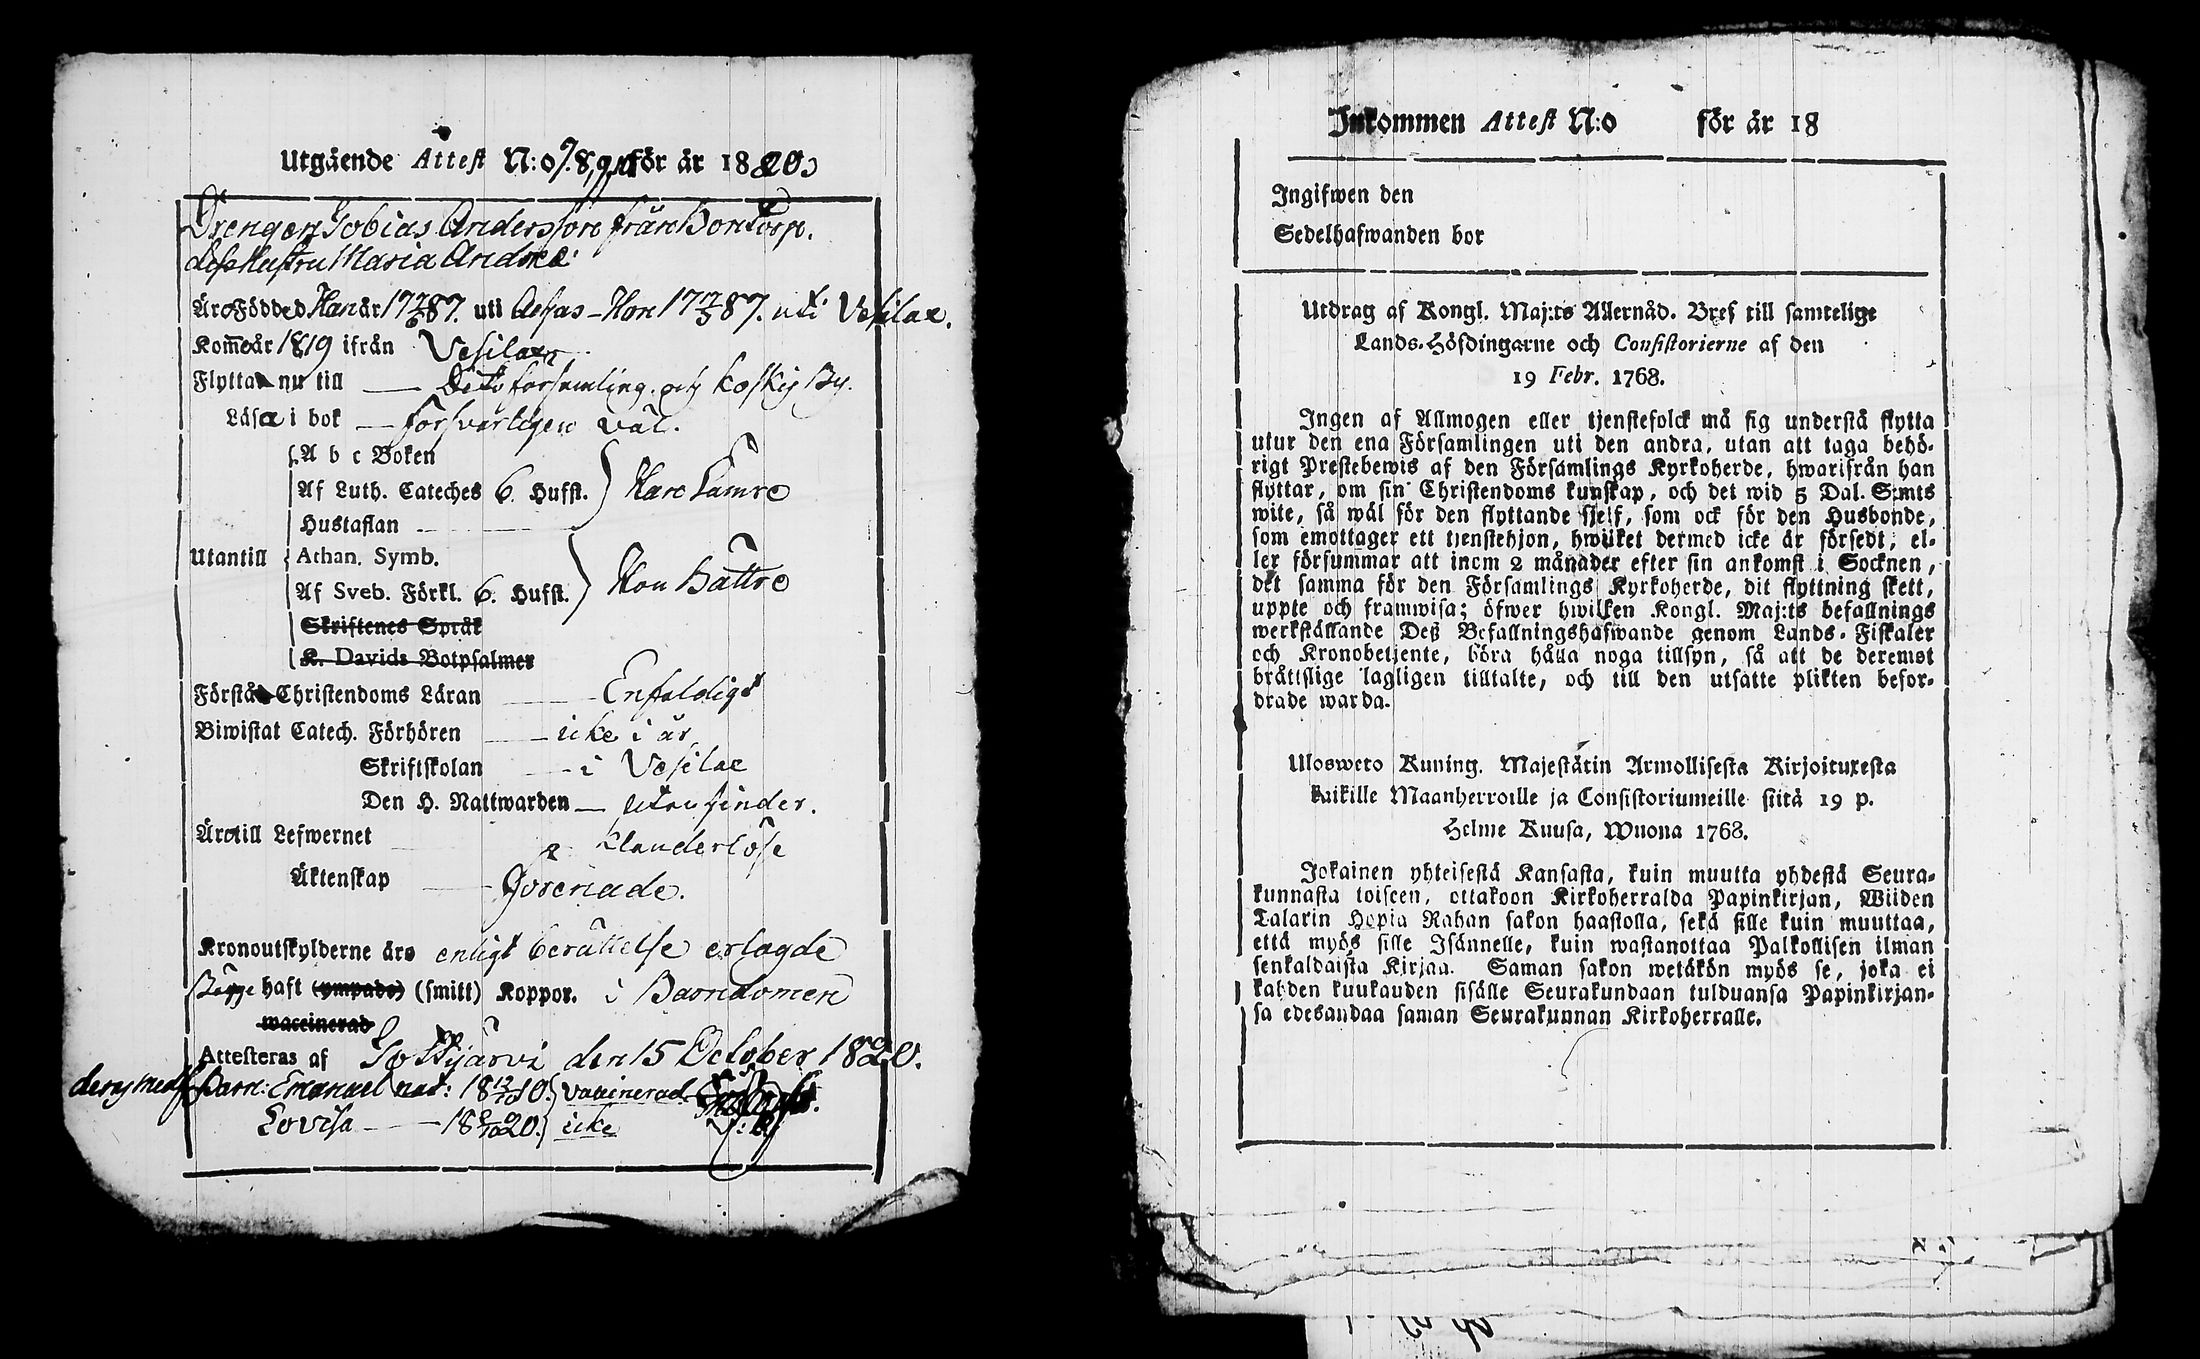 Utgående Attest N:o 7.8,9,10 för år 1820
Drengen Tobias Andersson från Bontorp.
dess Hustru Maria Andrea:
Äro Födde Han år 17 87. uti Assas - Hon 17 87. uti Vesilax.
Komne år 1819 ifrån Vesilax
Flytta nu till — Dito församling. och koskis By.
Läsa i bok — försvarligen väl.
A b c Boken
Af Luth. Cateches 6. Hufst. Han Sämre
Hustaflan
Utantill Athan. Symb.
Af Sveb. Förkl. 6. Hufst. Hon Bättre
Skriftenes Språk
K. Davids Botpsalmer
Förstå Christendoms Läran — Enfaldigt
Biwistat Catech. Förhören — icke i år
Skriftskolan — i Vesilax
Den H. Nattwarden — utan hinder.
Äro till Lefwernet klanderlöse
Äktenskap — Förenade.
Kronoutskylderne äro enligt berättelse erlagde
Begge haft (ympade) (smitt) Koppor. i Barndomen
waccinerad
Attesteras af Tottijärvi den 15 October 1820.
Barn: Emanuel nat: 18 10. vaccinerad.
Lovisa — 18 20. icke
Inkommen Attest N:o för år 18
Ingifwen den
Sedelhafwanden bor
Utdrag af Kongl. Maj:ts Allernåd. Bref till samtelige
Lands-Höfdingarne och Consistorierne af den
19 Febr. 1768.
Ingen af Allmogen eller tjenstefolck må sig understå flytta
utur den ena Församlingen uti den andra, utan att taga behö-
rigt Prestebewis af den Församlings Kyrkoherde, hwarifrån han
flyttar, om sin Christendoms kunskap, och det wid 5 Dal. S:mts
wite, så wäl för den flyttande sjelf, som ock för den Husbonde,
som emottager ett tjenstehjon, hwilket dermed icke är försedt, el-
ler försummar att inom 2 månader efter sin ankomst i Socknen,
det samma för den Församlings Kyrkoherde, dit flyttning skett,
uppte och framwisa; öfwer hwilken Kongl. Maj:ts befallnings
werkställande Deß Befallningshafwande genom Lands-Fiskaler
och Kronobetjente, böra hålla noga tillsyn, så att de deremot
bråttslige lagligen tilltalte, och till den utsatte plikten befor-
drade warda.
Uloswето Kuning. Majestätin Armollisesta Kirjoituxesta
kaikille Maanherroille ja Consistoriumeille siitä 19 p.
Helme Kuusa, Wuona 1768.
Jokainen yhteisestä Kansasta, kuin muutta yhdestä Seura-
kunnasta toiseen, ottakoon Kirkoherralda Papinkirjan, Wiiden
Talarin Hopia Rahan sakon haastolla, sekä sille kuin muuttaa,
että myös sille Isännelle, kuin wastanottaa Palkollisen ilman
senkaldaista Kirjaa. Saman sakon wetäkön myös se, joka ei
kahden kuukauden sisälle Seurakundaan tulduansa Papinkirjan-
sa edesandaa saman Seurakunnan Kirkoherralle.